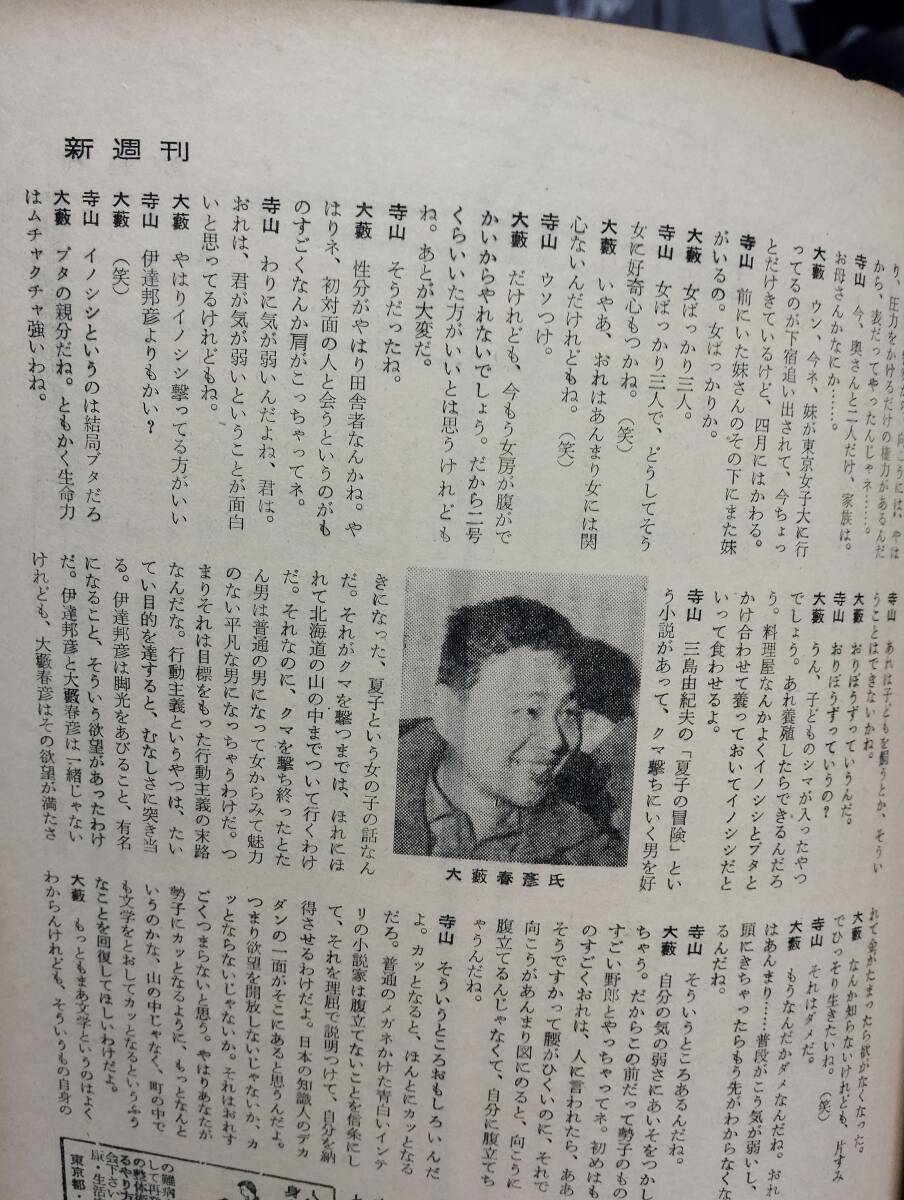 新週刊
り、圧力をかけるだけの権力があるんだ
から、表だってやったんじゃネ……。
寺山　今、奥さんと二人だけ、家族は。
お母さんかなにか……。
大藪　ウン、今ネ、妹が東京女子大に行
ってるのが下宿追い出されて、今ちょっ
とだけきているけど、四月にはかわる。
寺山　前にいた妹さんのその下にまた妹
がいるの。女ばっかりか。
大藪　女ばっかり三人。
寺山　女ばっかり三人で、どうしてそう
女に好奇心もつかね。（笑）
大藪　いやあ、おれはあんまり女には関
心ないんだけれどもね。（笑）
寺山　ウソつけ。
大藪　だけれども、今もう女房が腹がで
かいからやれないでしょう。だから二号
くらいいた方がいいとは思うけれども
ね。あとが大変だ。
寺山　そうだったね。
大藪　性分がやはり田舎者なんかね。や
はりネ、初対面の人と会うというのがも
のすごくなんか肩がこっちゃってネ。
寺山　わりに気が弱いんだよね、君は。
おれは、君が気が弱いということが面白
いと思ってるけれどもね。
大藪　やはりイノシシ撃ってる方がいい
寺山　伊達邦彦よりもかい？
大藪　（笑）
寺山　イノシシというのは結局ブタだろ
大藪　ブタの親分だね。ともかく生命力
はムチャクチャ強いわね。
寺山　あれは子どもを飼うとか、そうい
うことはできないかね。
大藪　おりぼうずっていうんだ。
寺山　おりぼうずっていうの？
大藪　うん、子どものシマが入ったやつ
でしょう。あれ養殖したらできるんだろ
う。料理屋なんかよくイノシシとブタと
かけ合わせて養っておいてイノシシだと
いって食わせるよ。
寺山　三島由紀夫の「夏子の冒険」とい
う小説があって、クマ撃ちにいく男を好
大藪春彦氏
きになった、夏子という女の子の話なん
だ。それがクマを撃つまでは、ほれにほ
れて北海道の山の中までついて行くわけ
だ。それなのに、クマを撃ち終ったとた
ん男は普通の男になって女からみて魅力
のない平凡な男になっちゃうわけだ。つ
まりそれは目標をもった行動主義の末路
なんだな。行動主義というやつは、たい
てい目的を達すると、むなしさに突き当
る。伊達邦彦は脚光をあびること、有名
になること、そういう欲望があったわけ
だ。伊達邦彦と大藪春彦は一緒じゃない
けれども、大藪春彦はその欲望が満たさ
れて金がたまったら欲がなくなった。
大藪　なんか知らないけれども、片すみ
でひっそり生きたいね。（笑）
寺山　それはダメだ。
大藪　もうなんだかダメなんだね。おれ
はあんまり……普段がこう気が弱いし、
頭にきちゃったらもう先がわからなくな
るんだね。
寺山　そういうところあるんだね。
大藪　自分の気の弱さにあいそをつかし
ちゃう。だからこの前だって勢子のもの
すごい野郎とやっちゃってネ。初めはも
のすごくおれは、人に言われたら、ああ
そうですかって腰がひくいのに、それで
向こうがあんまり図にのると、向こうに
腹立てるんじゃなくて、自分に腹立てち
ゃうんだね。
寺山　そういうところおもしろいんだ
よ。カッとなると、ほんとにカッとなる
だろ。普通のメガネかけた青白いインテ
リの小説家は腹立てないことを信条にし
て、それを理屈で説明つけて、自分を納
得させるわけだよ。日本の知識人のデカ
ダンの一面がそこにあると思うんだよ。
つまり欲望を開放しないじゃないか、カ
ッとならないじゃないか。それはおれす
ごくつまらないと思う。やはりあなたが
勢子にカッとなるように、もっとなんと
いうのかな、山の中じゃなく、町の中で
も文学をとおしてカッとなるというふう
なことを回復してほしいわけだよ。
大藪　もっともまあ文学というのはよく
わからんけれども、そういうもの自身の
の難病
して再発
の整体術
るやり方
会下さい
康・生活
東京都・
身